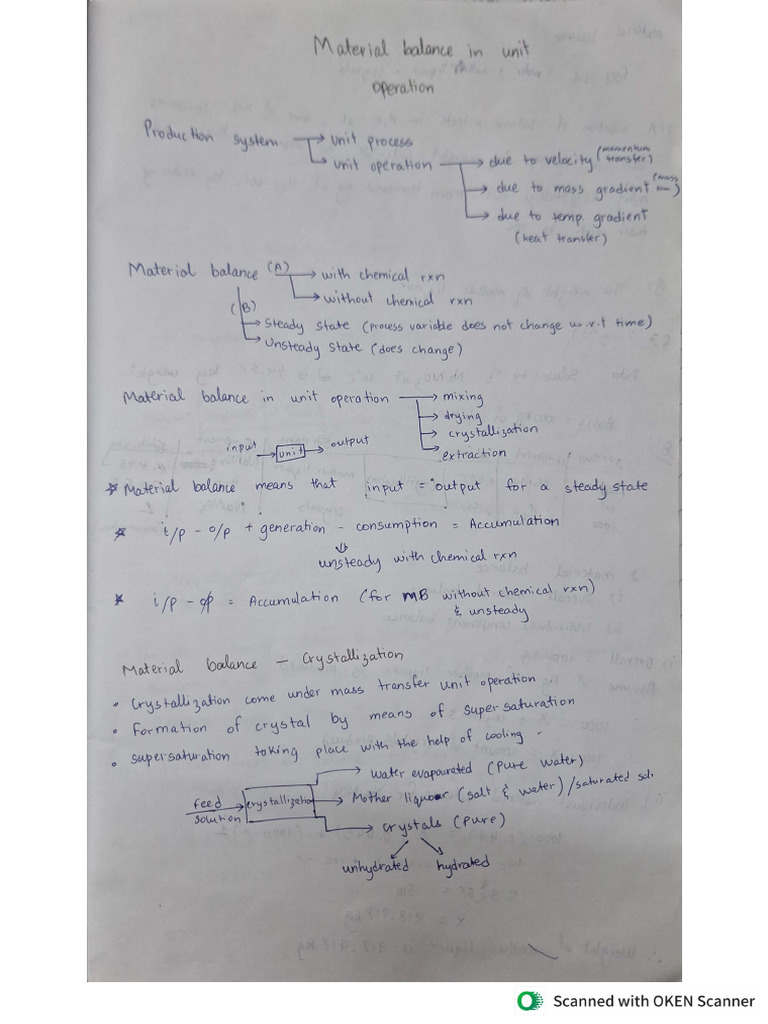 Material balance in unit
operation
Production system → unit process
→ unit operation → due to velocity (momentum transfer)
→ due to mass gradient (mass
→ due to temp. gradient
(heat transfer)
Material balance (A) → with chemical rxn
→ without chemical rxn
(B)
→ Steady State (process variable does not change w.r.t time)
→ Unsteady State (does change)
Material balance in unit operation → mixing
→ drying
→ crystallization
→ extraction
input → unit → output
* Material balance means that input = output for a steady state
* i/p - o/p + generation - consumption = Accumulation
⇓
unsteady with chemical rxn
* i/p - o/p = Accumulation (for MB without chemical rxn)
& unsteady
Material balance - Crystallization
• Crystallization come under mass transfer unit operation
• Formation of crystal by means of super saturation
• supersaturation taking place with the help of cooling -
→ water evapourated (pure water)
feed solution → crystallization → Mother liquour (salt & water) / saturated sol.
→ crystals (pure)
unhydrated hydrated
Scanned with OKEN Scanner